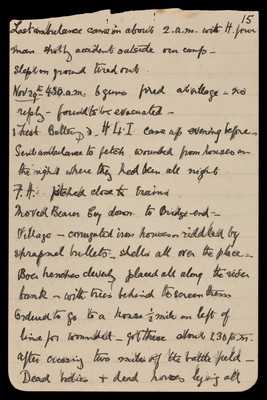 15
Last ambulance came in about 2. a.m. with H. four
man shot by accident outside our camp -
Slept on ground tired out.
Nov 29th 4.50 a.m. 6 guns fired at village - no
reply - found to be evacuated -
Battery & H L I came up evening before -
Sent ambulance to fetch wounded from houses on
the right where they had been all night
F. H. pitched close to trains
Moved Bearer Coy down to Bridge-end -
Village - corrugated iron houses riddled by
shrapnel bullets - shells all over the place -
Boer trenches cleverly placed all along the river
bank - with trees behind to screen them
Ordered to go to a house ½ mile on left of
line for wounded - got there about 2.30 p.m.
after crossing two miles of the battle field -
Dead bodies & dead horses lying all